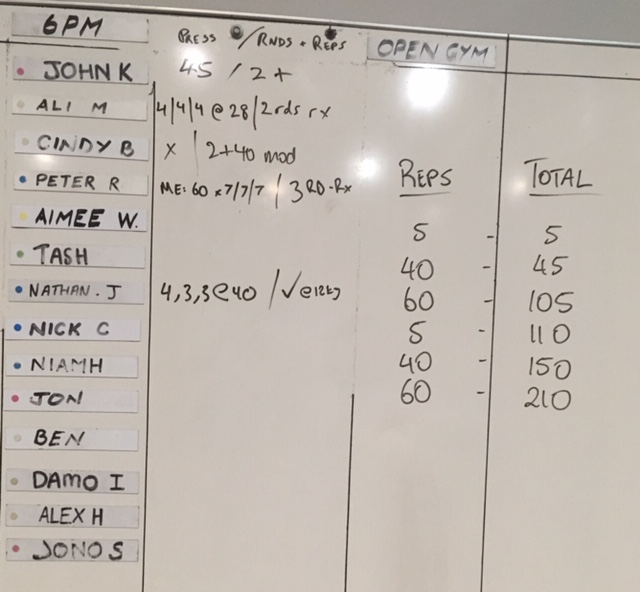 6PM PRESS /RNDS + REPS OPEN GYM
JOHN K 45 / 2+
ALI M 4/4/4 @ 28 / 2rds rx
CINDY B X | 2+40 mod
PETER R ME: 60 x 7/7/7 / 3 RD-Rx
REPS TOTAL
AIMEE W.
5 - 5
TASH
40 - 45
NATHAN.J 4,3,3@40 / √@12kg
60 - 105
NICK C
5 - 110
NIAMH
40 - 150
JON
60 - 210
BEN
DAMO I
ALEX H
JONO S